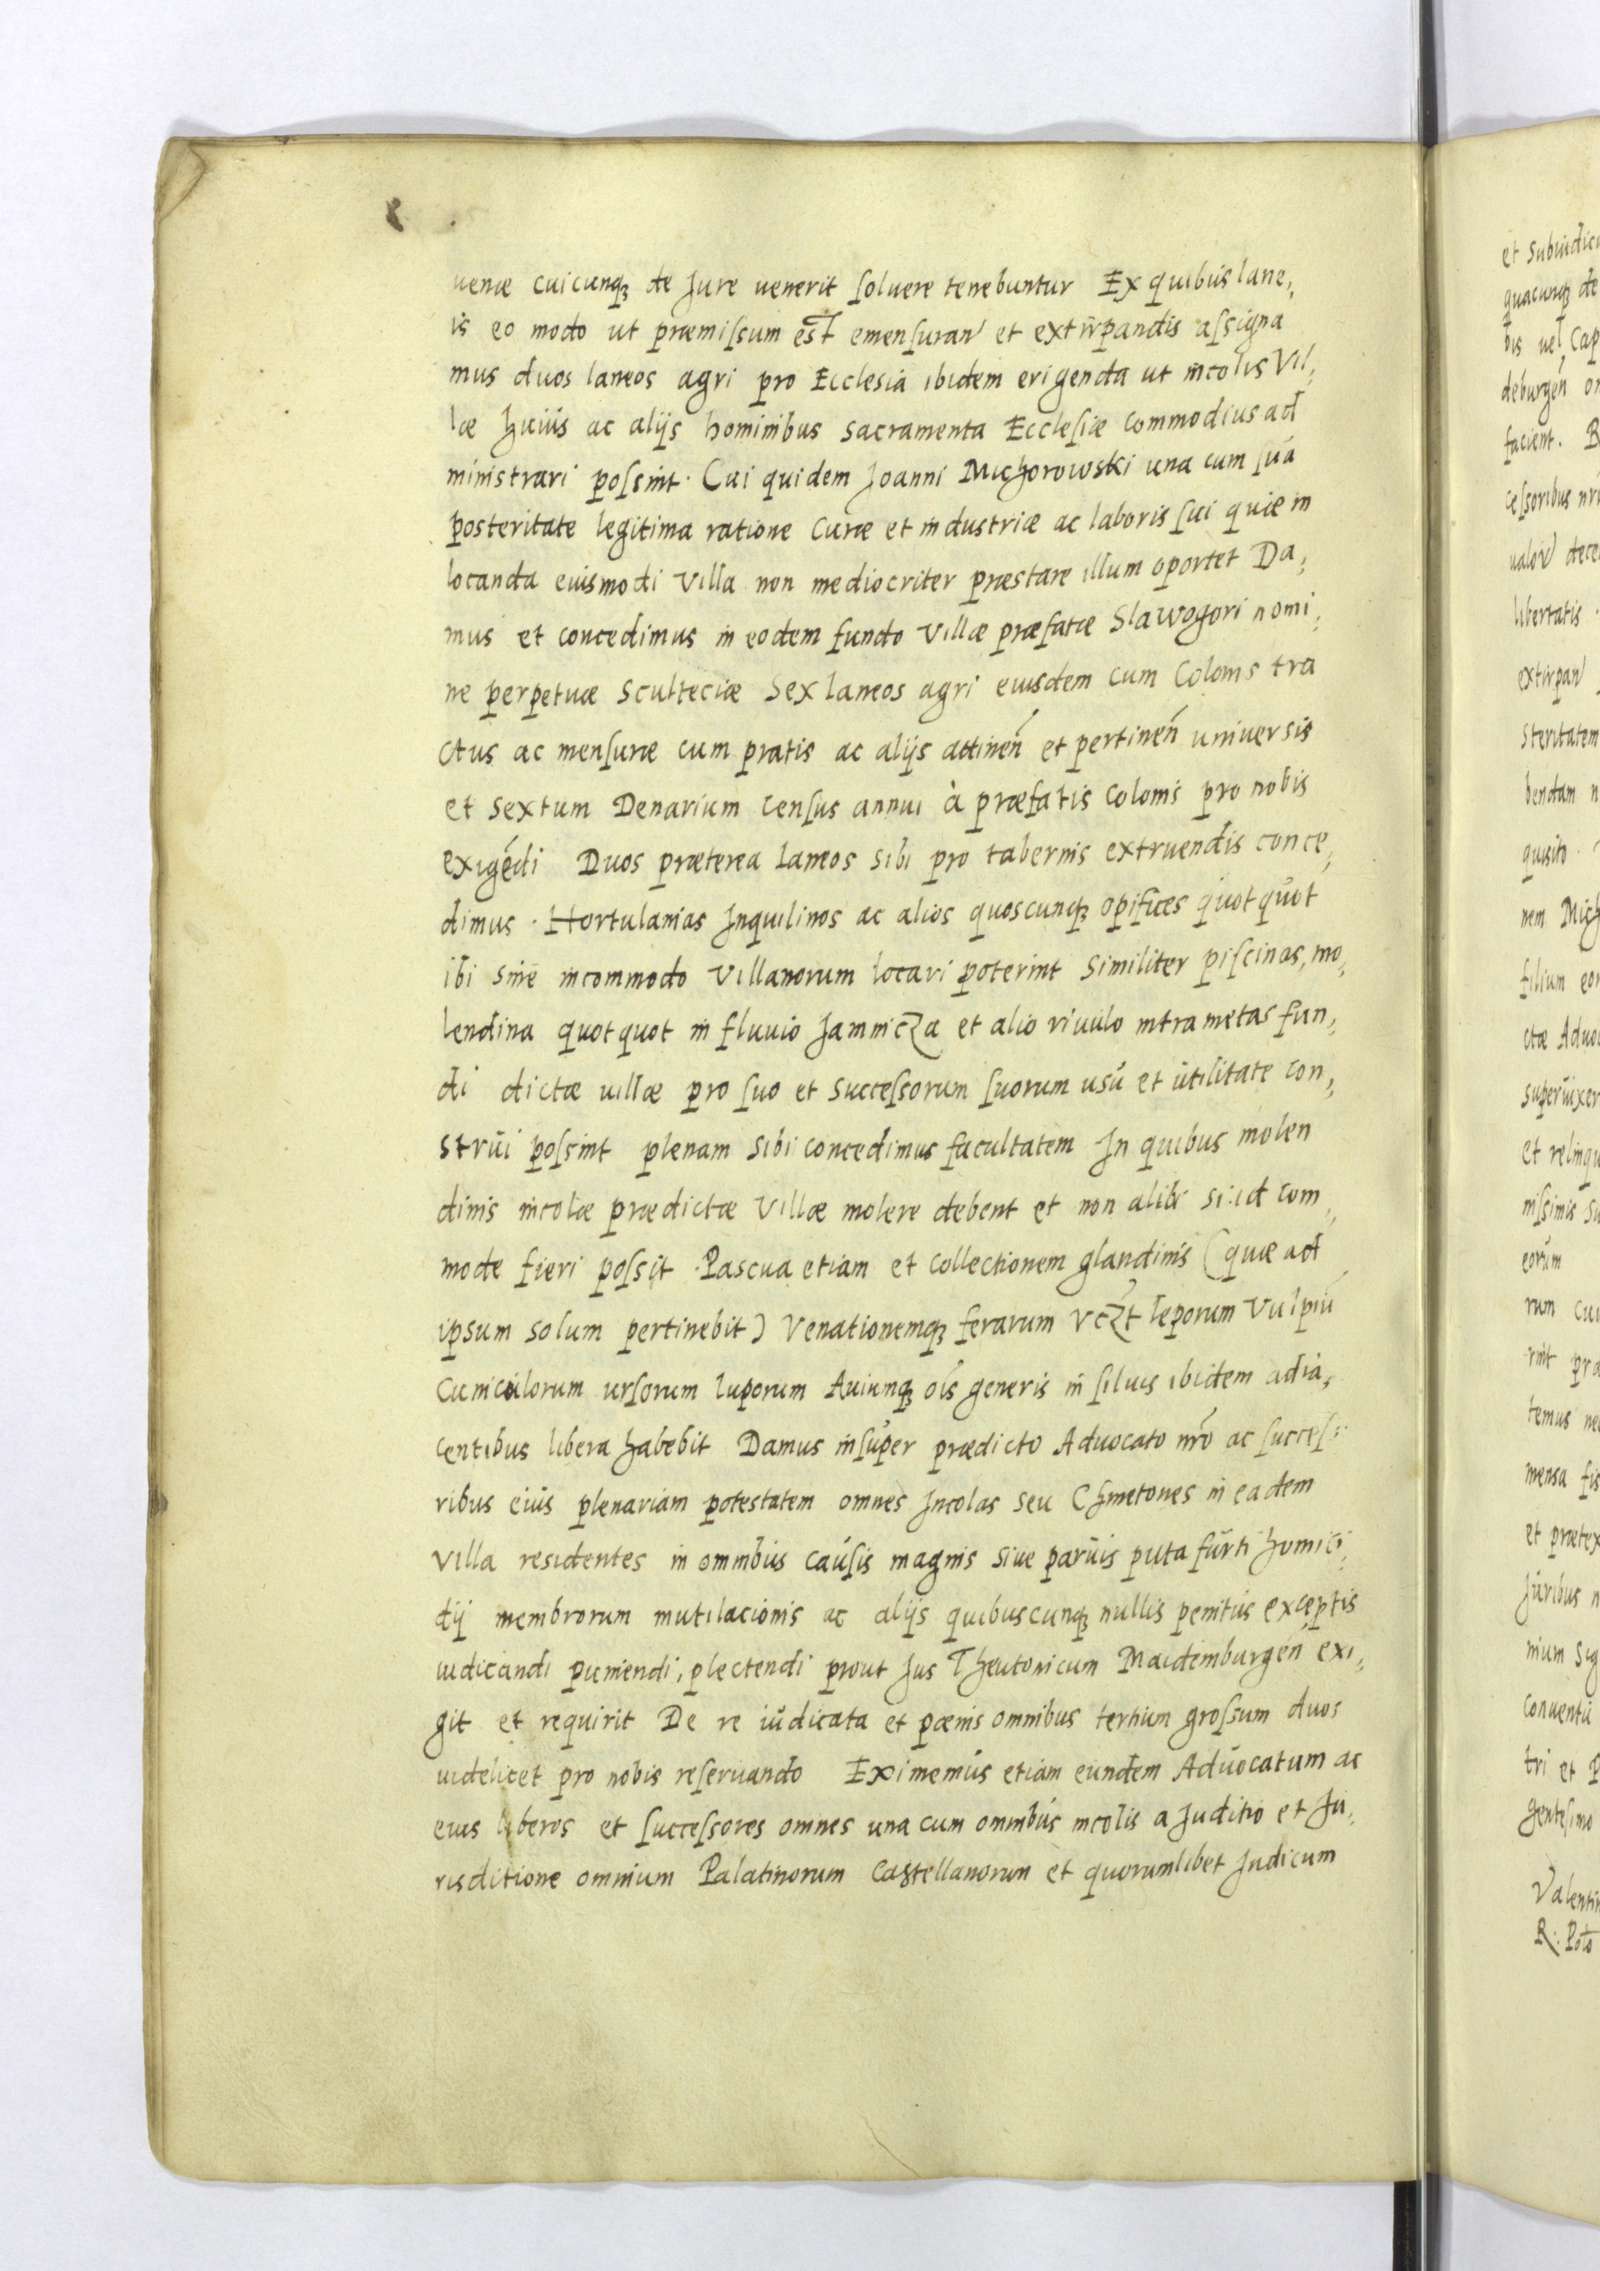 uenæ cuicunqꝫ de Jure uenerit ſoluere tenebuntur Ex quibus lane,,
is eo modo ut præmiſsum est emenſuran̄ et extirpandis aſsigna
mus duos laneos agri pro Ecclesia ibidem erigenda ut incolis Vil,,
læ huius ac alijs hominibus sacramenta Eccleſiæ commodius ad
ministrari poſsint. Cui quidem Joanni Michorowski una cum ſua
posteritate legitima ratione curæ et industriæ ac laboris ſui quæ in
locanda eiusmodi villa non mediocriter præstare illum oportet Da,,
mus et concedimus in eodem fundo villæ præfatæ Slawogori nomi,,
ne perpetuæ scultetiæ Sex laneos agri eiusdem cum Colonis tra
ctus ac menſuræ cum pratis ac alijs attinen̄ et pertinen̄ uniuersis
et sextum Denarium cenſus annui à præfatis colonis pro nobis
exigēdi Duos præterea laneos sibi pro tabernis extruendis conce,,
dimus. Hortulanias Inquilinos ac alios quoscunqꝫ opifices quotquot
ibi sine incommodo villanorum locari poterint similiter piſcinas, mo,,
lendina quotquot in fluuio Jamnicza et alio riuulo intra metas fun,,
di dictæ uillæ pro ſuo et succeſsorum ſuorum usu et utilitate con,,
strui poſsint plenam sibi concedimus facultatem In quibus molen
dinis incolæ prædictæ villæ molere debent et non alibi si id com,,
mode fieri poſsit. Pascua etiam et collectionem glandinis (quæ ad
ipsum solum pertinebit) venationemqꝫ ferarum vcꝫt leporum vulpiū
cuniculorum urſorum luporum Auiumqꝫ oīs generis in ſiluis ibidem adia,,
centibus libera habebit Damus inſuper prædicto Aduocato nr̄o ac succeſ
ribus eius plenariam potestatem omnes Incolas seu Chmetones in eadem
villa residentes in omnibus cauſis magnis siue paruis puta furti homici,,
dij membrorum mutilacionis ac alijs quibuscunqꝫ nullis penitus exceptis
iudicandi puniendi, plectendi prout Jus Theutonicum Maidemburgen̄ exi,,
git et requirit De re iudicata et pœnis omnibus tertium groſsum duos
uidelicet pro nobis reſeruando Eximemus etiam eundem Aduocatum ac
eius liberos et ſucceſsores omnes una cum omnibus incolis a Juditio et Ju,,
risditione omnium Palatinorum Castellanorum et quorumlibet Judicum
et
quacunqꝫ de
bis uel Cap
deburgen̄
facient.
ceſsoribus
libertatis
extirpan̄
steritatem
bendam
quisito
nem
filium
ctæ
et
eorum
rum
temus
mensa
et
Juribus
nium
conuentu
tri et
gentesimo
R: